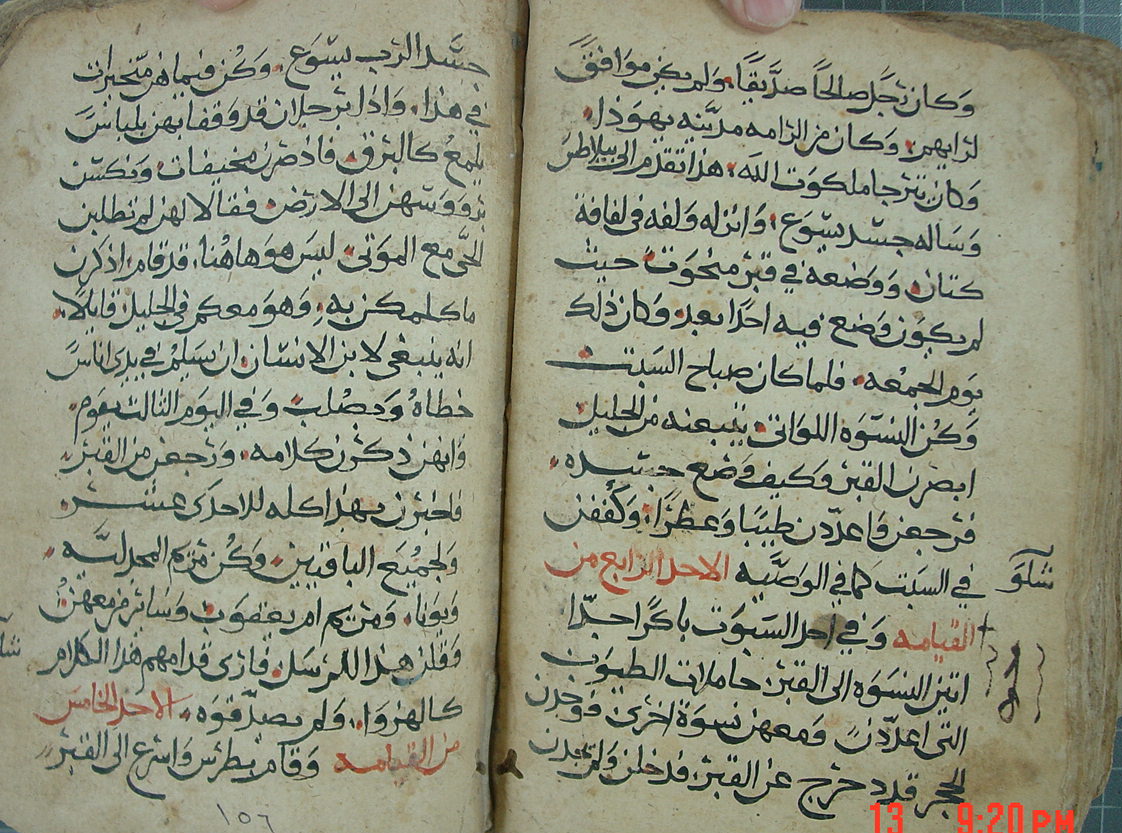 وكان رجلا صالحًا صدّيقًا. ولم يكن موافق
لرايهم. وكان من الرامه مدينه يهوذا.
وكان يترجا ملكوت الله. هذا تقدم الى بيلاطس
وساله جسد يسوع. وانزله ولفه في لفافة
كتان. ووضعه في قبر منحوت حيث
لم يكون وضع فيه احدًا بعد. وكان ذلك
يوم الجمعه. فلما كان صباح السبت
وكن النسوه اللواتي يتبعنه من الجليل
ابصرن القبر وكيف وضع جسده.
فرجعن واعدّدن طيبًا وعطرًا. وكففن
في السبت كما في الوصيّه الاحد الرابع من
القيامه وفي احد السبوت باكرًا جدّا
اتين النسوه الى القبر. حاملات الطيوب
التي اعدّدن ومعهن نسوة اخرى فوجدن
الحجر قد دحرج عن القبر. فدخلن ولم يجدن
جسد الرب يسوع. وكن فيما هن متحيرات
في هذا. واذا برجلان قد وقفا بهن بلباس
يلمع كالبرق. فاذ صرن مخيفات ونكسن
رووسهن الى الارض فقالا لهن لم تطلبن
الحي مع الموتى. ليس هو هاهنا. قد قام. اذكرن
ما كلمكن به. وهو معكم في الجليل قايلا.
انه ينبغي لابن الانسان ان يسلم في يدي اناس
خطاه ويصلب وفي اليوم الثالت يقوم.
وانهن ذكرن كلامه. ورجعن من القبر.
فاخبرن بهذا كله للاحدى عشر
ولجميع الباقيين. وكن مريم المجدليه
ويونا. ومريم ام يعقوب وساير من معهن
وقلن هذا للرسل. فاري قدامهم هذا الكلام
كالهزوا. ولم يصدقوه. الاحد الخامس
من القيامه وقام بطرس واسرع الى القبر
١٥٦
13 9:20 PM